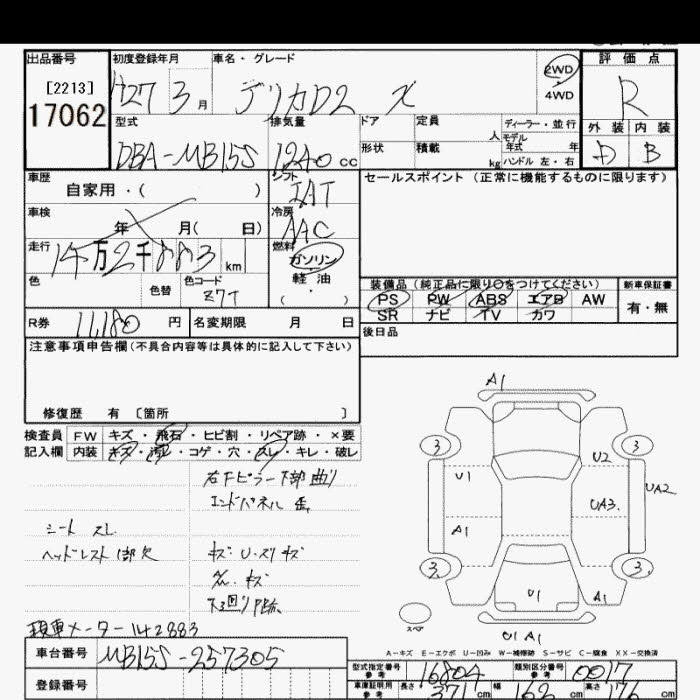 出品番号 初度登録年月 車名・グレード 2WD 評価点
[2213] H27 3月 デリカD2 X 4WD R
17062 型式 排気量 ドア 定員 人 ディーラー・並行 外装 内装
DBA-MB15S 1240cc 形状 積載 kg モデル年式 年 D B
ハンドル 左・右
車歴 自家用・( ) シフト IAT セールスポイント(正常に機能するものに限ります)
車検 年 月( 日) 冷房 AAC
走行 14万2千883km 燃料 ガソリン
軽油
( ・ )
色 色替 色コード Z7T 装備品(純正品に限り○をつけてください) 新車保証書
PS PW ABS エアB AW 有・無
SR ナビ TV カワ
R券 11,180円 名変期限 月 日 後日品
注意事項申告欄(不具合内容等は具体的に記入して下さい)
修復歴 有〔箇所 〕
検査員 FW キズ・飛石・ヒビ割・リペア跡・×要
記入欄 内装 キズ・汚レ・コゲ・穴・スレ・キレ・破レ
右下ピラー下部曲り
エンドパネル
シート スレ
ヘッドレスト1部欠 キズ U・スリキズ
キズ
下回り
現車メーター142883
A1
3 3
U2
U1 UA2
UA3
A1
3 3
U1 A1
スペア
U1 A1
A-キズ E-エクボ U-凹み W-補修跡 S-サビ C-腐食 XX-交換済
車台番号 MB15S-257305
登録番号
型式指定番号 参考 16804 類別区分番号 参考 0017
車庫証明用 参考 長さ 371cm 幅 162cm 高さ 176cm